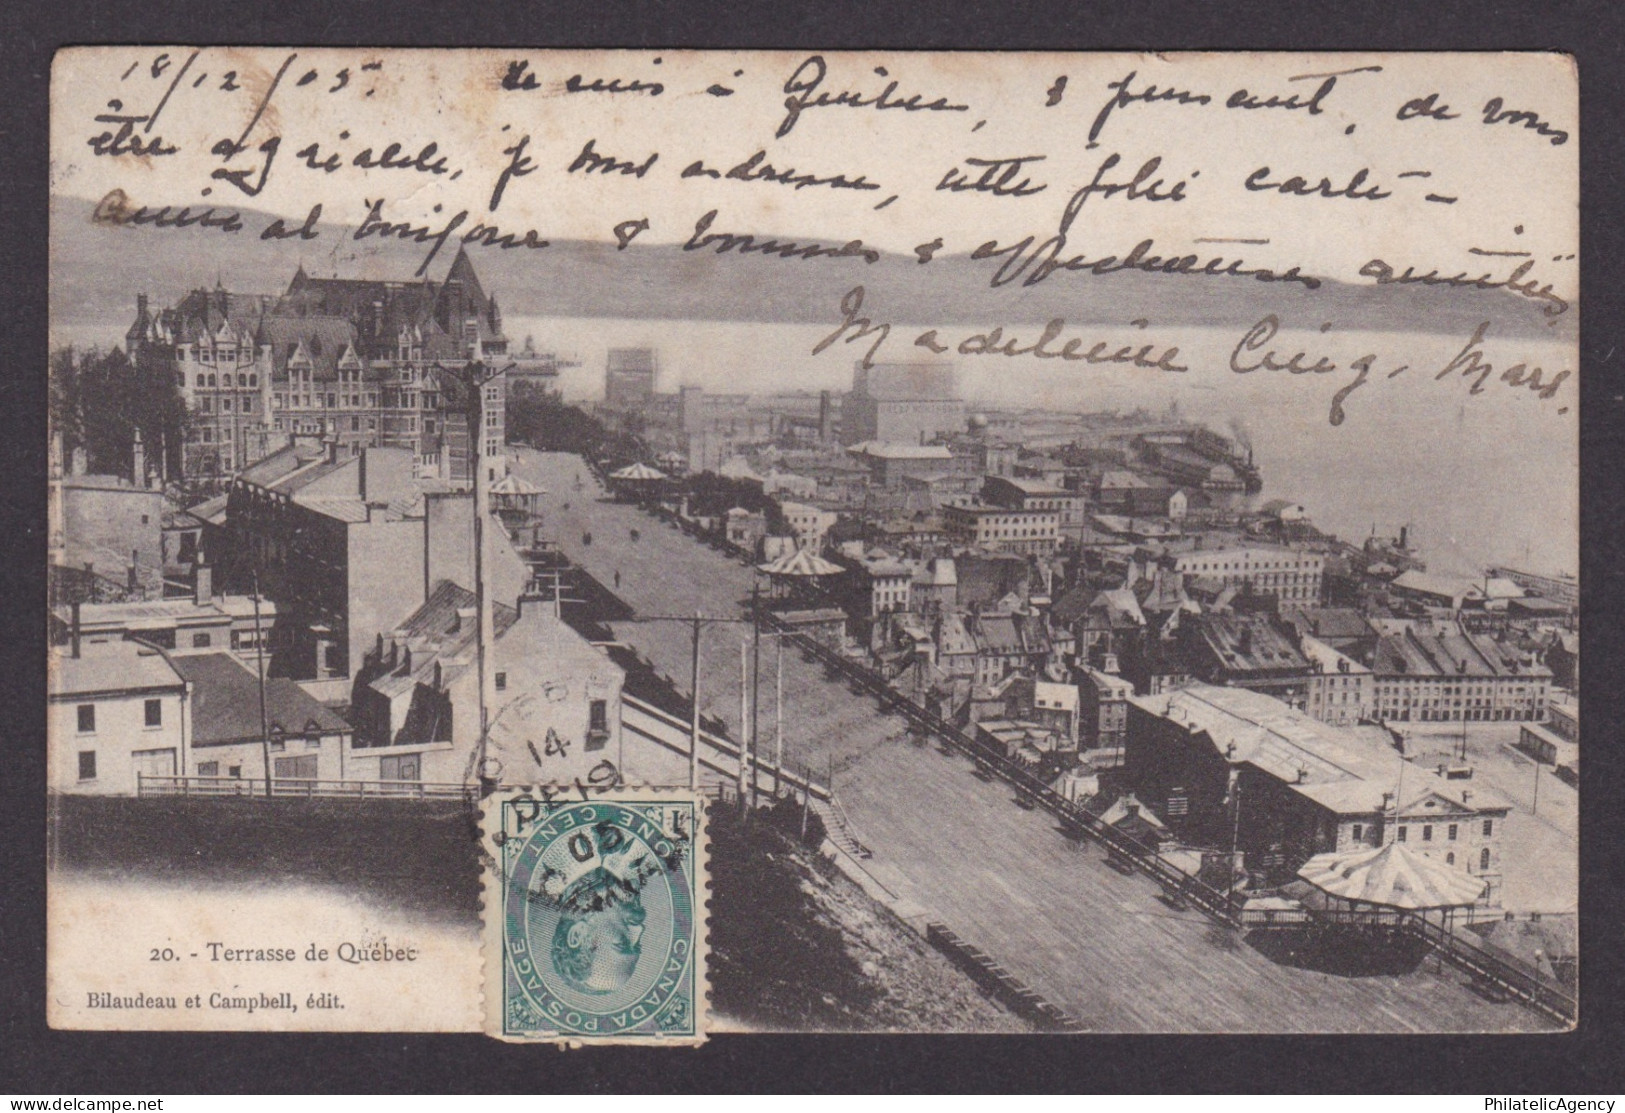 18/12/05. Je suis à Québec, & pensant, de vous
être agréable, je vous adresse, cette jolie carte -
amical bonjour & bonnes & affectueuses amitiés.
Madeleine Mars.
QUEBEC
14
DE 19
05
CANADA
CANADA POSTAGE
ONE CENT
1 1
20. - Terrasse de Québec
Bilaudeau et Campbell, édit.
PhilatelicAgency